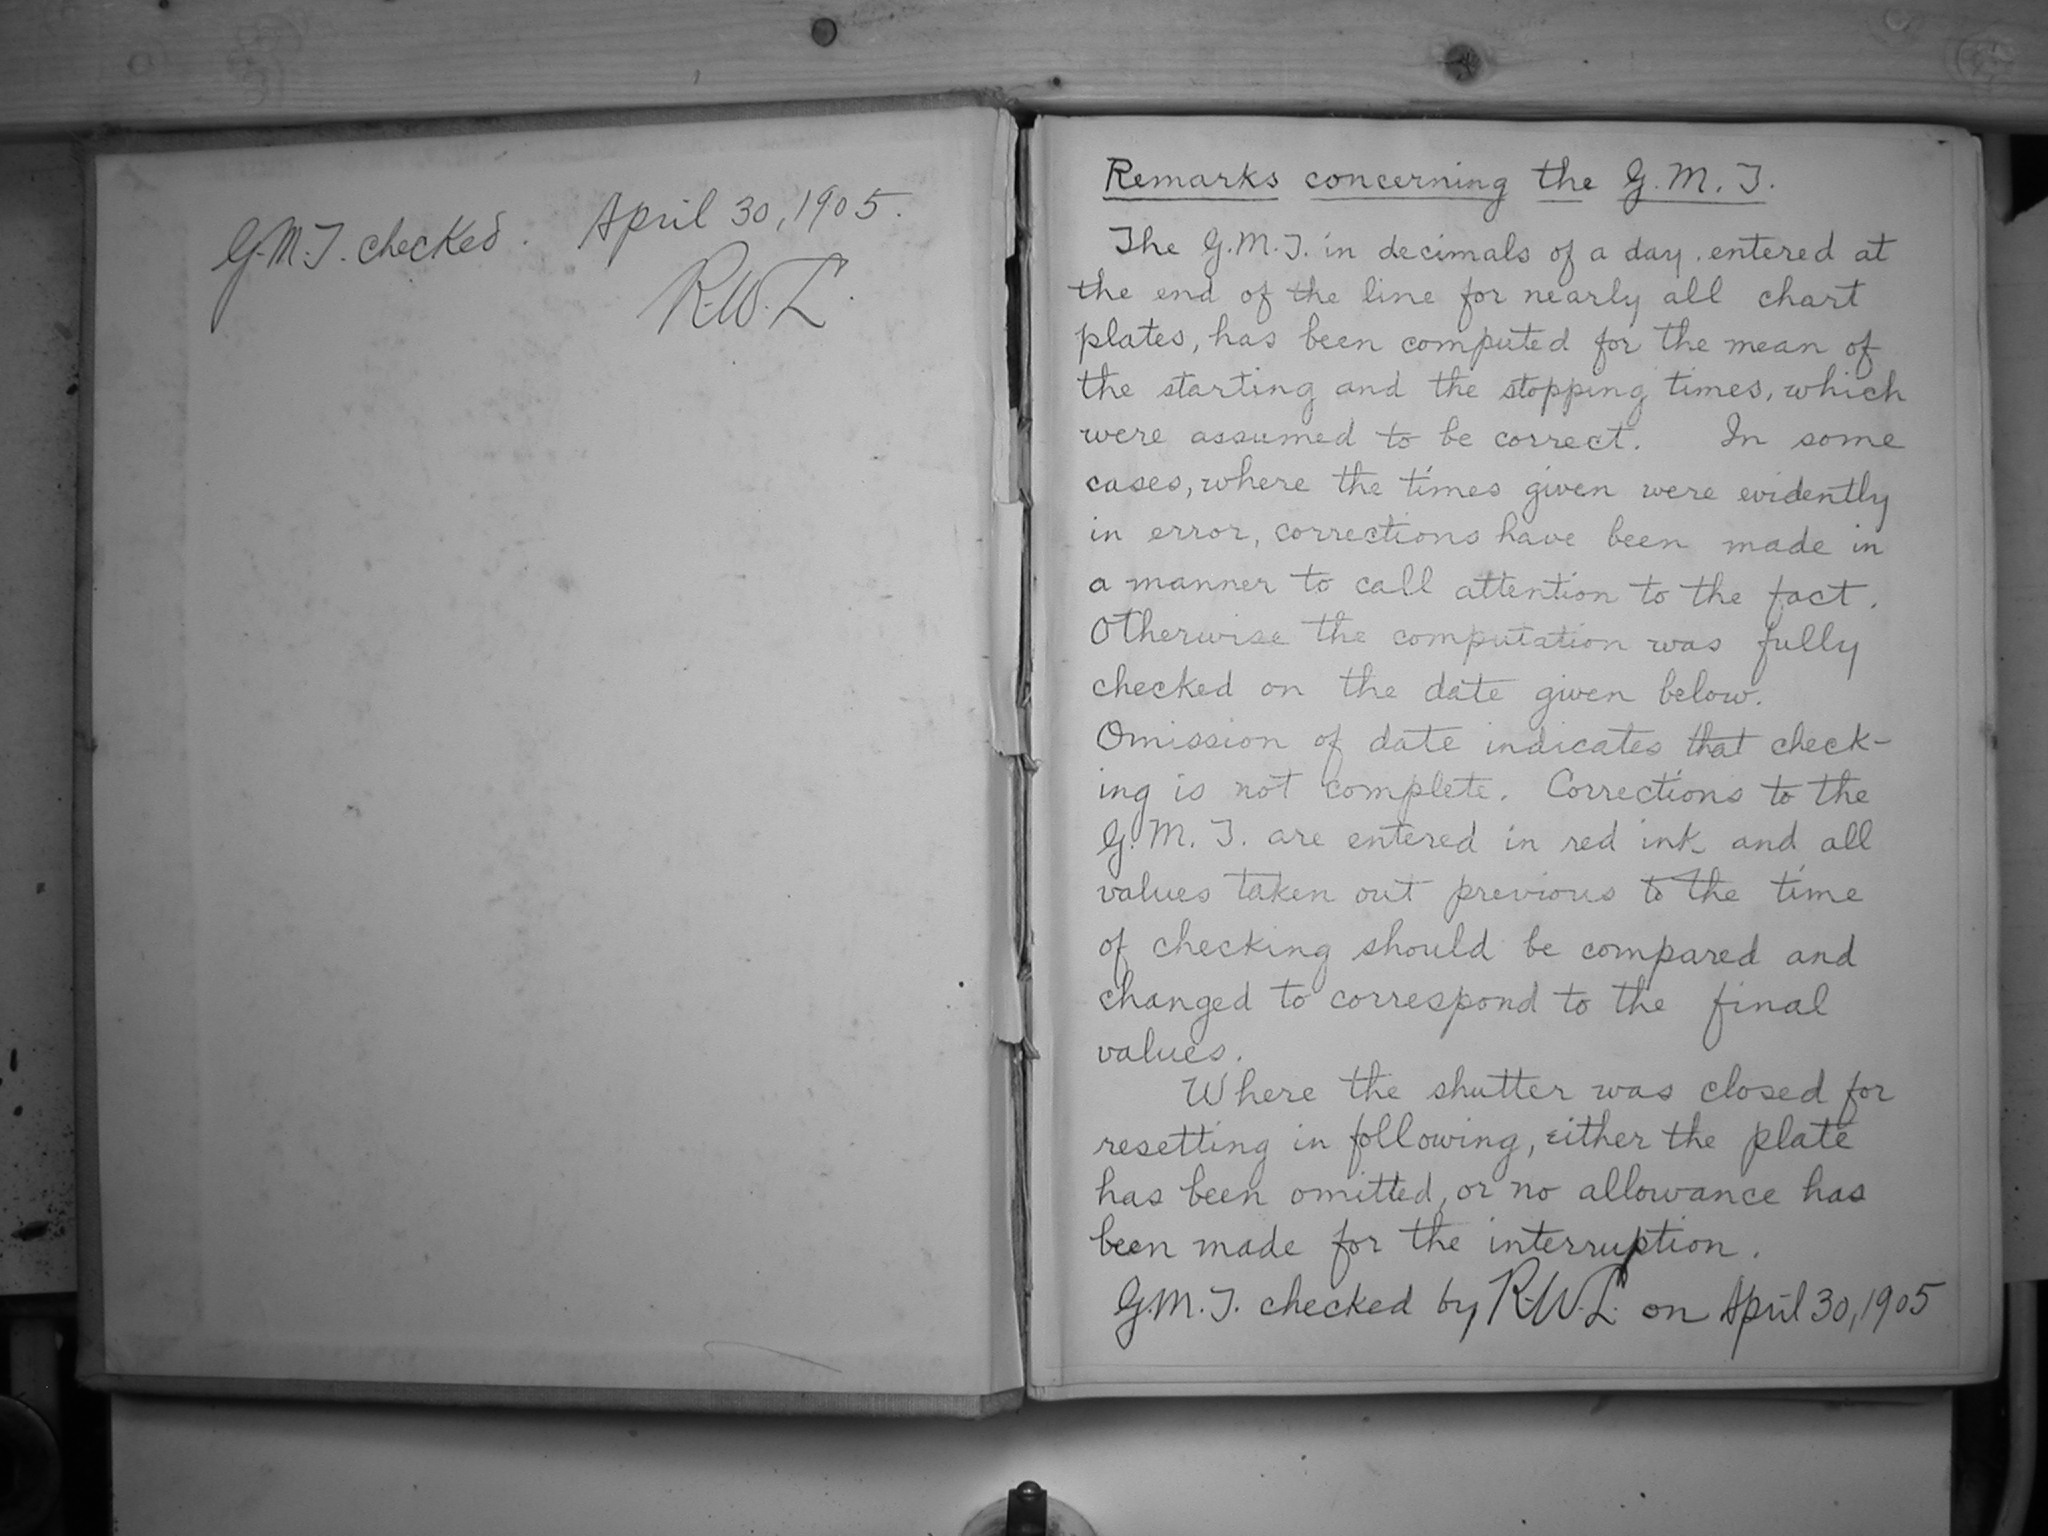 G.M.T. checked. April 30, 1905.
R.W.L.
Remarks concerning the G.M.T.
The G.M.T. in decimals of a day, entered at
the end of the line for nearly all chart
plates, has been computed for the mean of
the starting and the stopping times, which
were assumed to be correct. In some
cases, where the times given were evidently
in error, corrections have been made in
a manner to call attention to the fact.
Otherwise the computation was fully
checked on the date given below.
Omission of date indicates that check-
ing is not complete. Corrections to the
G.M.T. are entered in red ink and all
values taken out previous to the time
of checking should be compared and
changed to correspond to the final
values.
Where the shutter was closed for
resetting in following, either the plate
has been omitted, or no allowance has
been made for the interruption.
G.M.T. checked by R.W.L. on April 30, 1905